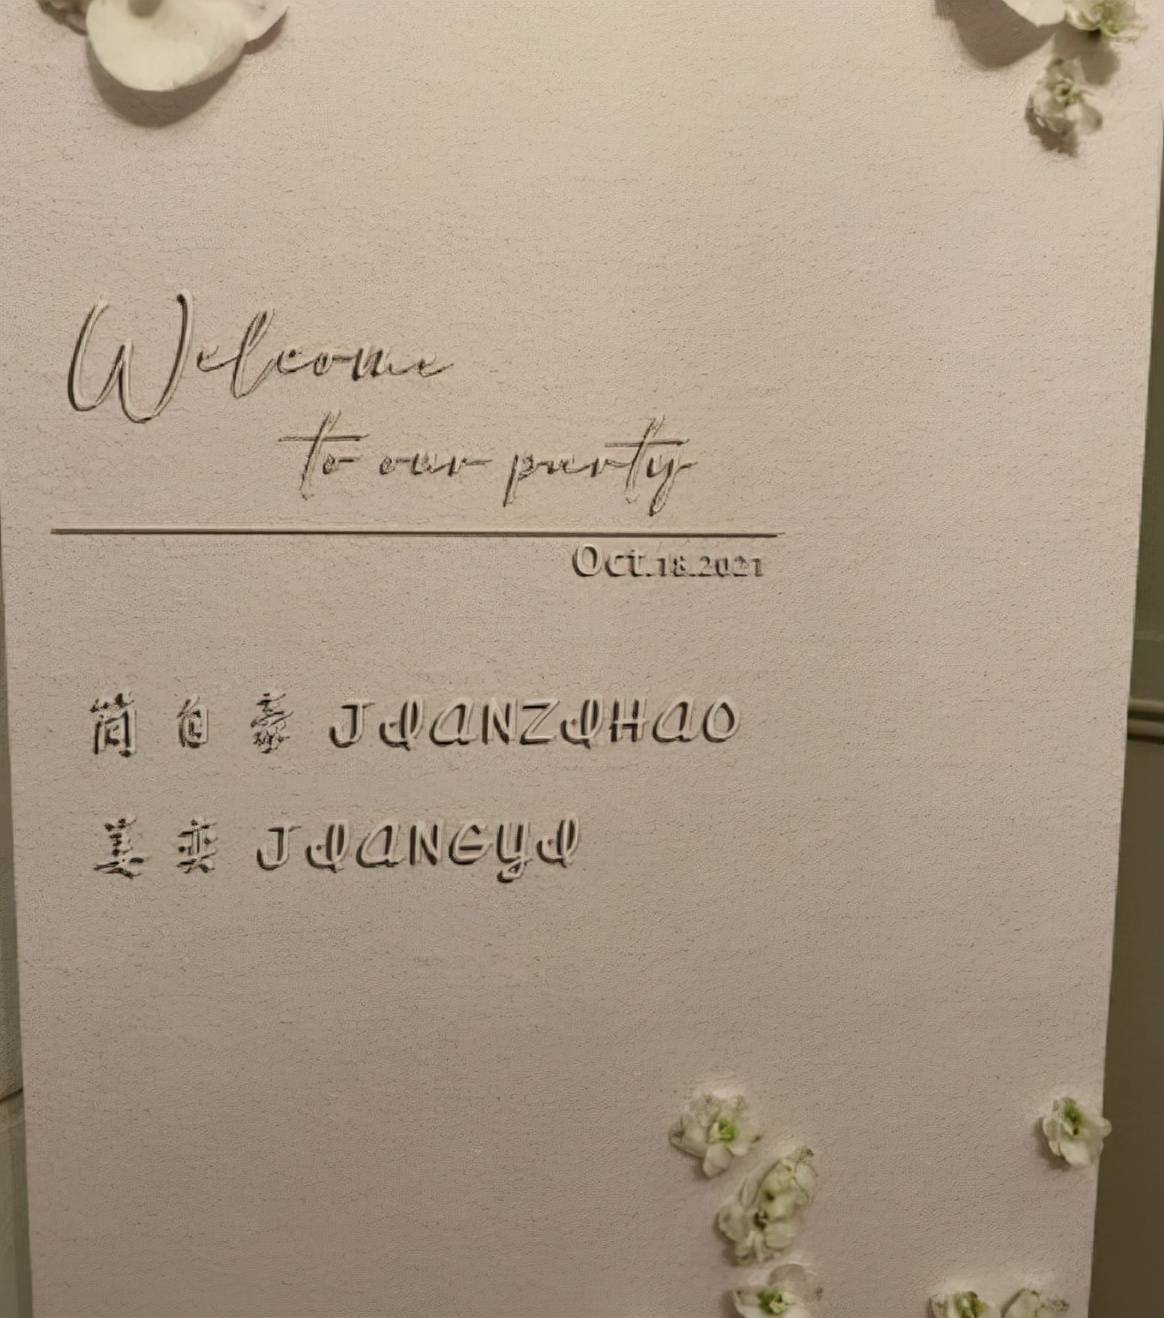 Welcome
to our party
Oct.18.2021
简自豪 JIANZIHAO
姜奕 JIANGYI